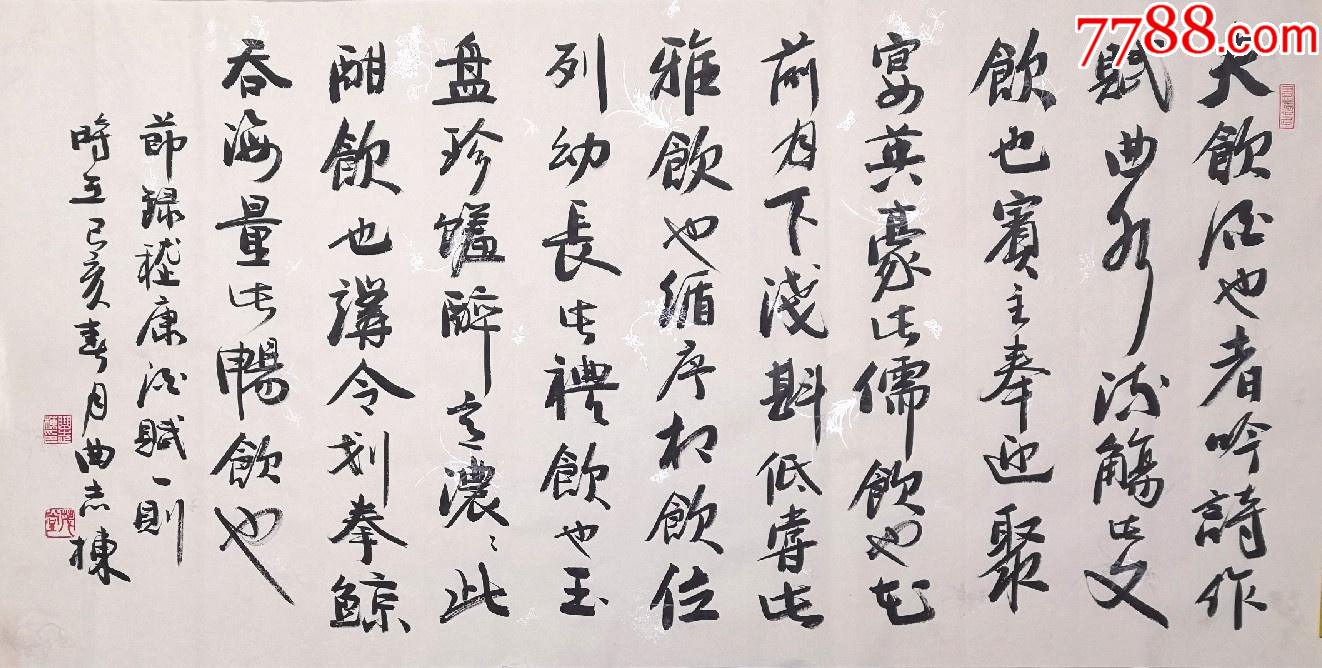 夫飲酒也者吟詩作
賦曲水流觴此文
飲也賓主奉迎聚
宴英豪此儒飲也花
前月下淺斟低嘗此
雅飲也循序相飲位
列幼長此禮飲也玉
盘珍饈醉意濃〻此
酣飲也講令划拳鲸
吞海量此暢飲也
節録嵇康酒賦一則
時在己亥春月曲志棟
7788.com